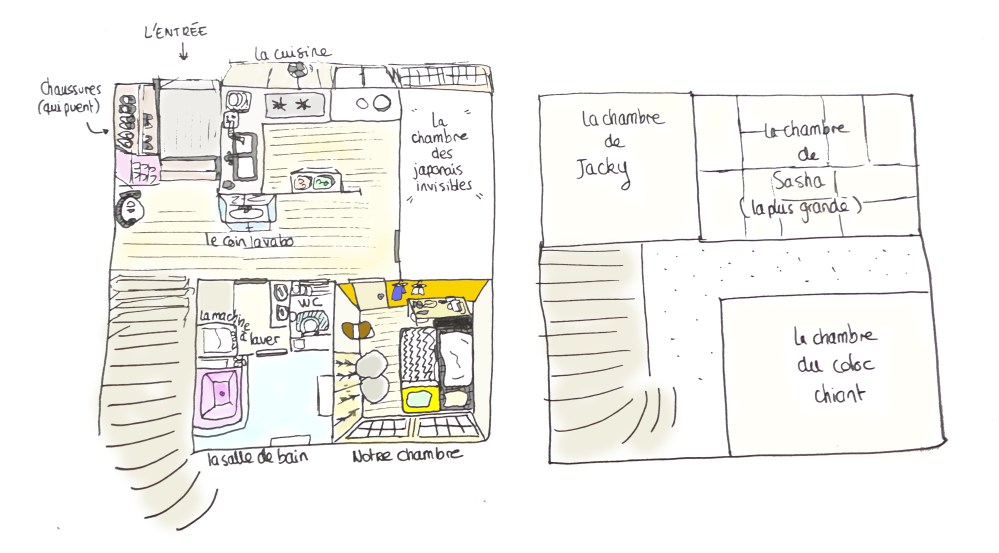 L'ENTRÉE
la cuisine
Chaussures
(qui puent)
" La "
chambre
des
japonais
" invisibles "
le coin lavabo
WC
la machine
à
laver
la salle de bain
Notre chambre
la chambre
de
Jacky
la chambre
de
Sasha
(la plus grande)
la chambre
du coloc
chiant